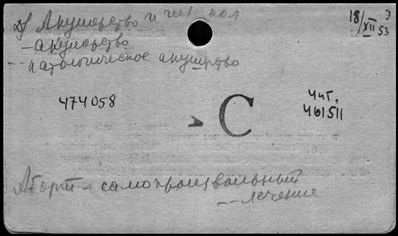 Акушерство и гин. пол
18/XII 53
– акушерство
-- патологическое акушерство
474058
Чит.
461511
С
Аборт – самопроизвольный
-- лечение